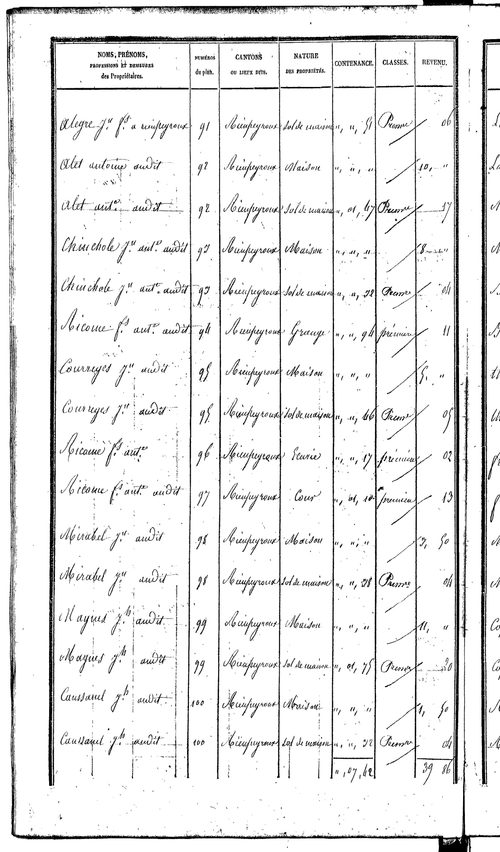 NOMS, PRÉNOMS, PROFESSIONS ET DEMEURES des Propriétaires. NUMÉROS du plan. CANTONS OU LIEUX DITS. NATURE DES PROPRIÉTÉS. CONTENANCE. CLASSES. REVENU.
Alegre jn fs a rieupeyroux 91 Rieupeyroux sol de maison " " 51 Premre / 06
Alet antoine audit 92 Rieupeyroux Maison " " " / 10, "
Alet antne audit 92 Rieupeyroux sol de maison " 01, 47 Premre / 17
Chinchole jn antne audit 93 Rieupeyroux Maison " " " / 8 "
Chinchole jn antne audit 93 Rieupeyroux sol de maison " " 32 Premre / 04
Ricome fs antne audit 94 Rieupeyroux Grange " " 94 première / 11
Courreges jn audit 95 Rieupeyroux Maison " " " / 5, "
Courreges jn audit 95 Rieupeyroux sol de maison " " 46 Premre / 05
Ricome fs antne 96 Rieupeyroux Ecurie " " 17 première / 02
Ricome fs antne audit 97 Rieupeyroux Cour " 01, 10 première / 13
Mirabel jn audit 98 Rieupeyroux Maison " " " / 3, 50
Mirabel jn audit 98 Rieupeyroux sol de maison " " 38 Premre / 04
Maynes jh audit 99 Rieupeyroux Maison " " " / 11, "
Maynes jh audit 99 Rieupeyroux sol de maison " 01, 75 Premre / 20
Caussanel jh audit 100 Rieupeyroux Maison " " " / 1, 50
Caussanel jh audit 100 Rieupeyroux sol de maison " " 32 Premre / 04
" 07, 42 39 86